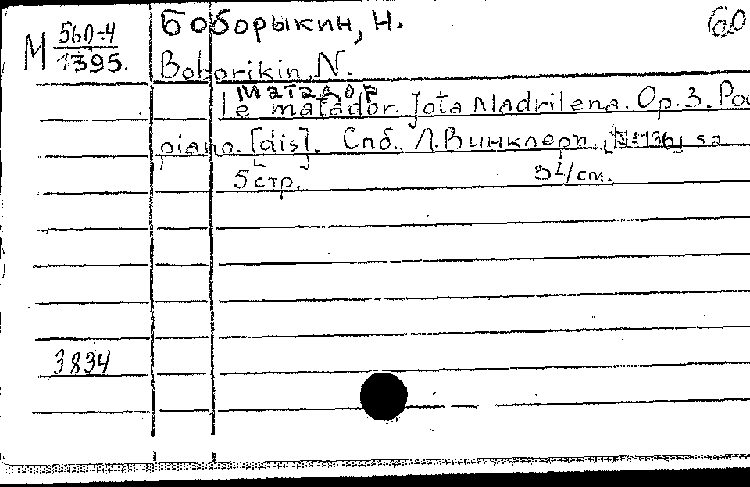 М 560-4/1395.
Боборыкин, Н.
60
Boborikin, N.
Матадор
le matador. Jota Madrilena. Op. 3. Pou
piano. [dis]. Спб., Л. Винклерп, [№136] sa
5 стр. 34/см.
3834